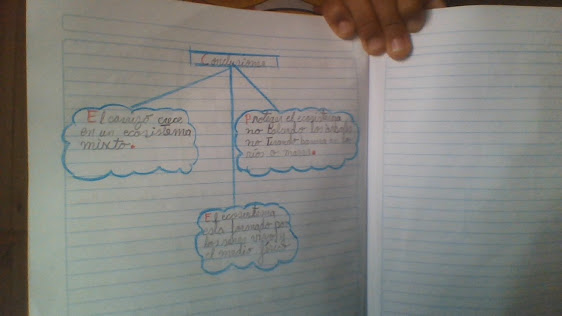 Conclusiones
El carrizo crece
en un ecosistema
mixto.
Proteger el ecosistema
no talando los árboles
no tirando basura en los
ríos o mares.
El ecosistema
esta formado por
los seres vivos y
el medio físico